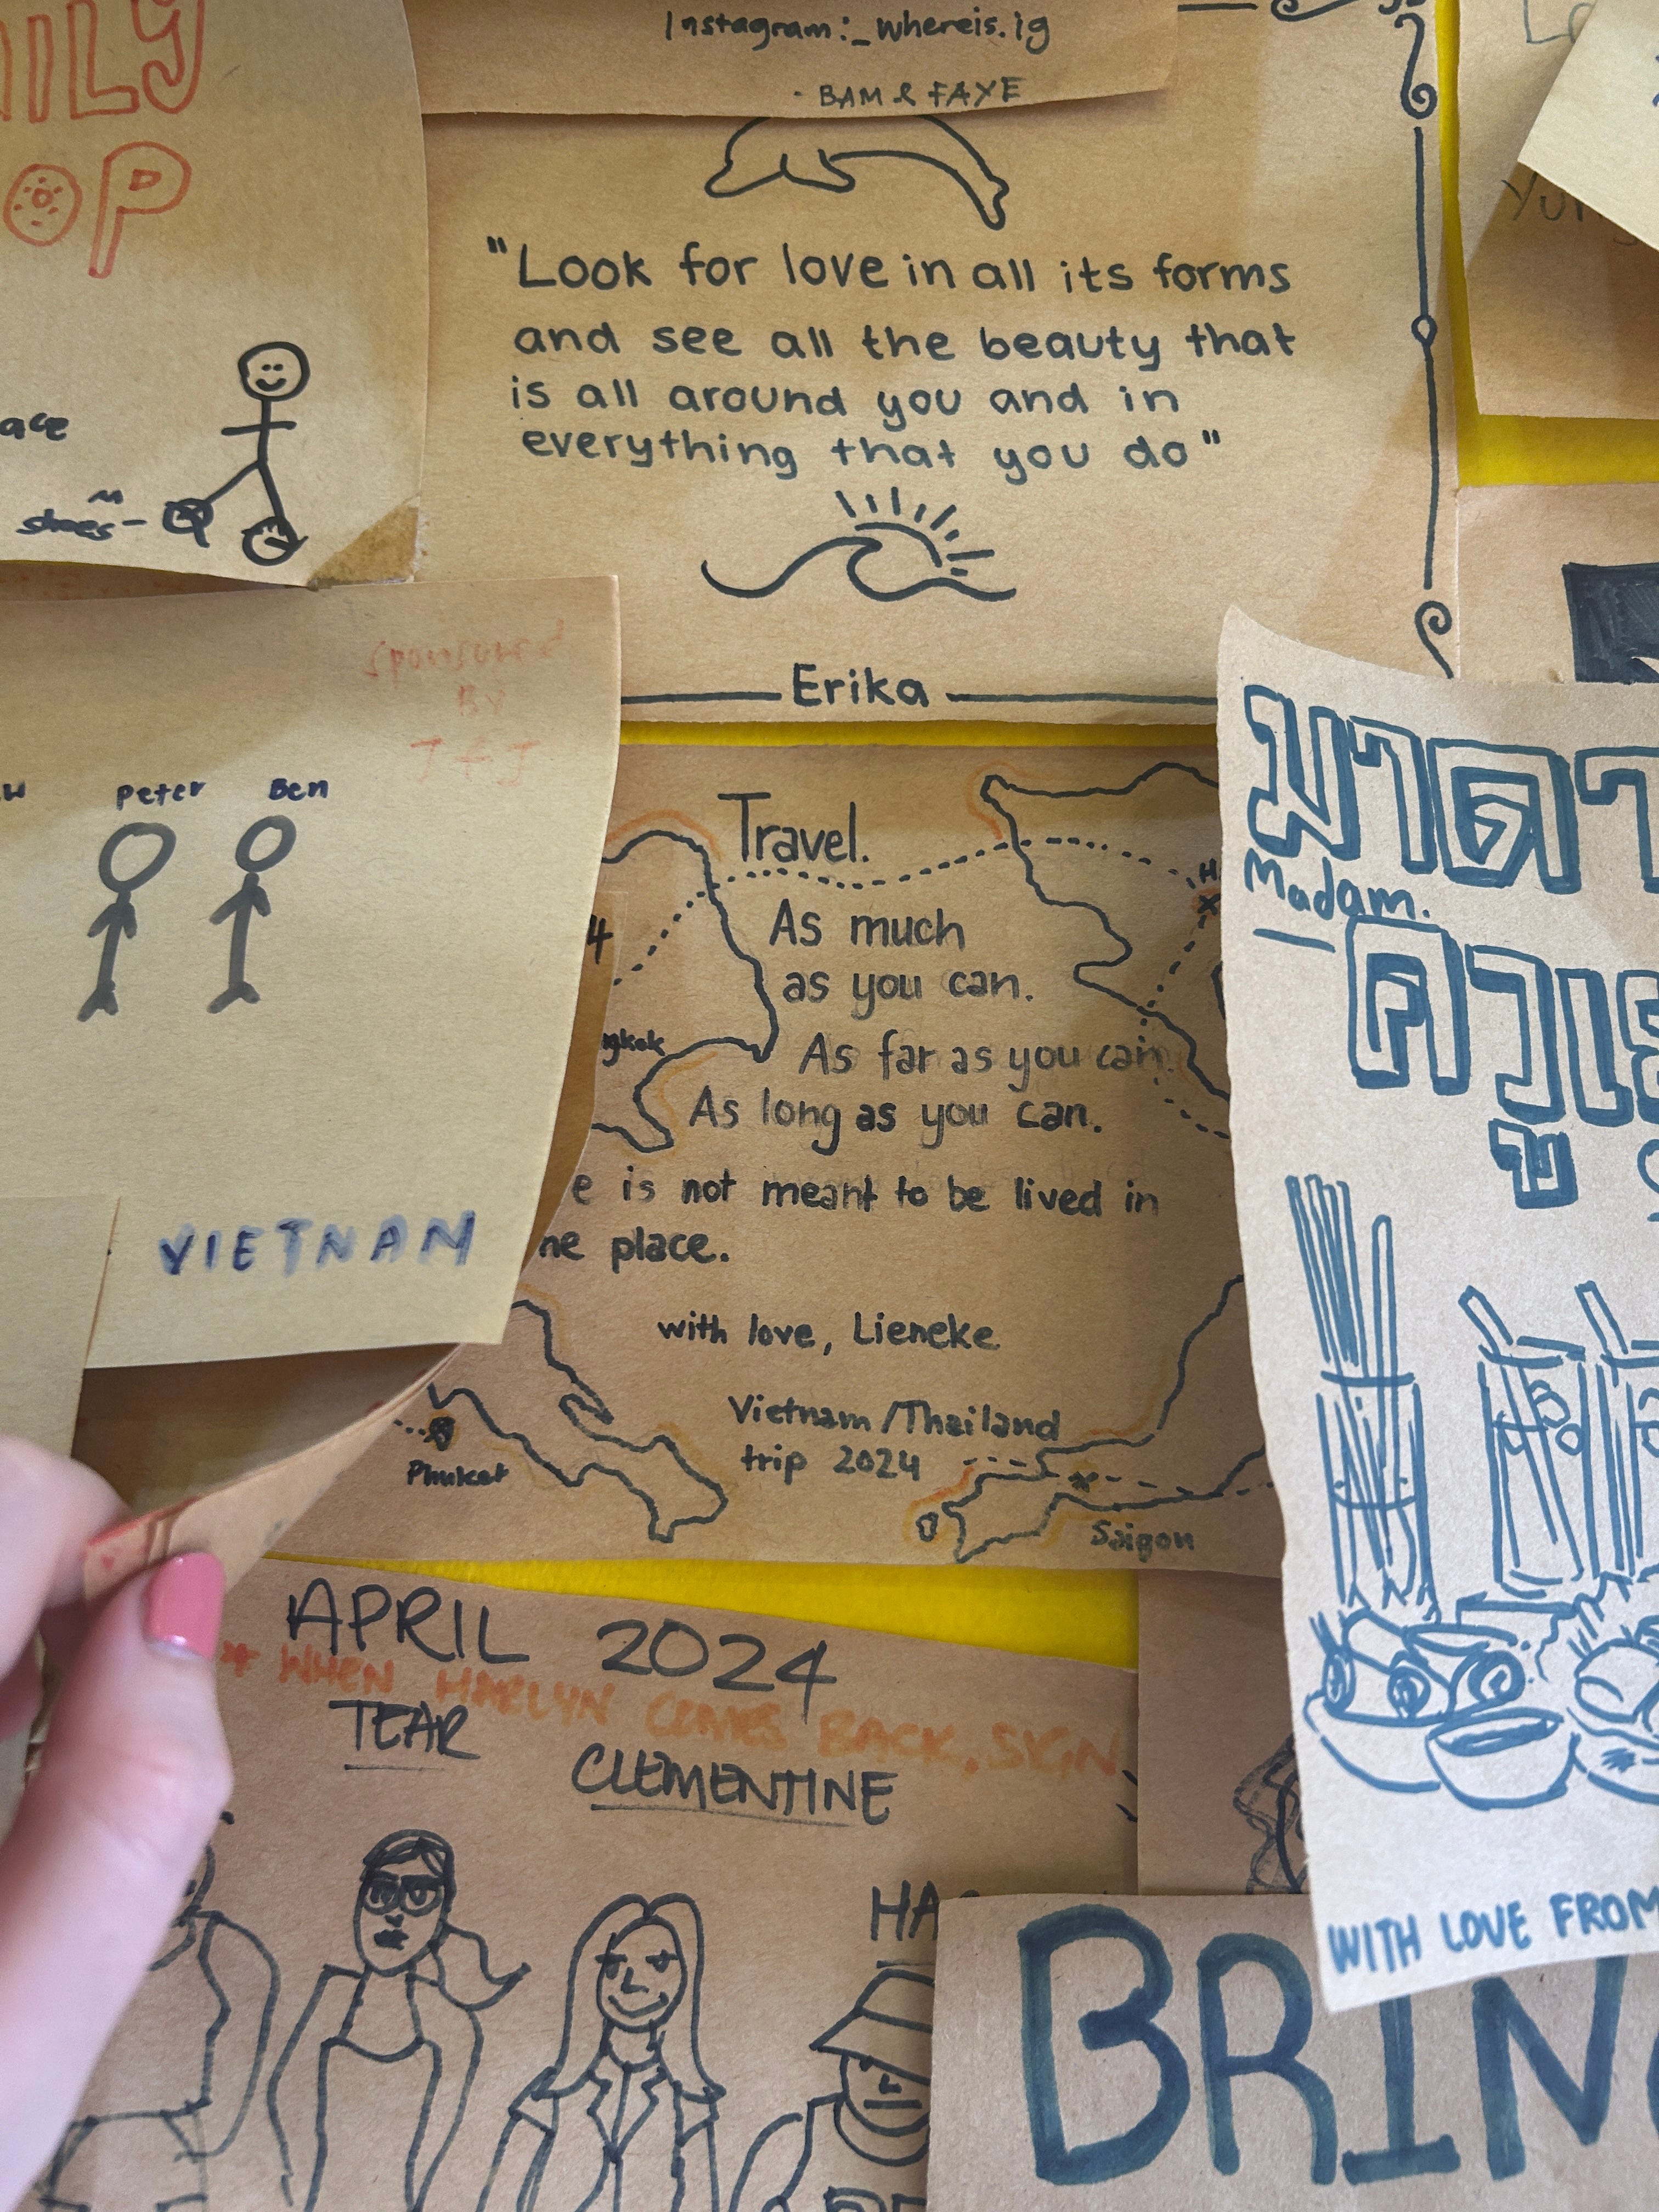 Instagram:_whereis.ig
- BAM & FAYE
"Look for love in all its forms
and see all the beauty that
is all around you and in
everything that you do"
Erika
shoes-
sponsored
BY
J & J
Peter Ben
VIETNAM
Travel.
As much
as you can.
As far as you can.
As long as you can.
e is not meant to be lived in
ne place.
with love, Lieneke
Vietnam/Thailand
trip 2024
gkok
Phuket
Saigon
มาดา
Madam.
WITH LOVE FROM
APRIL 2024
* WHEN HARLYN COMES BACK, SIGN
TEAR
CLEMENTINE
HA
BRIN